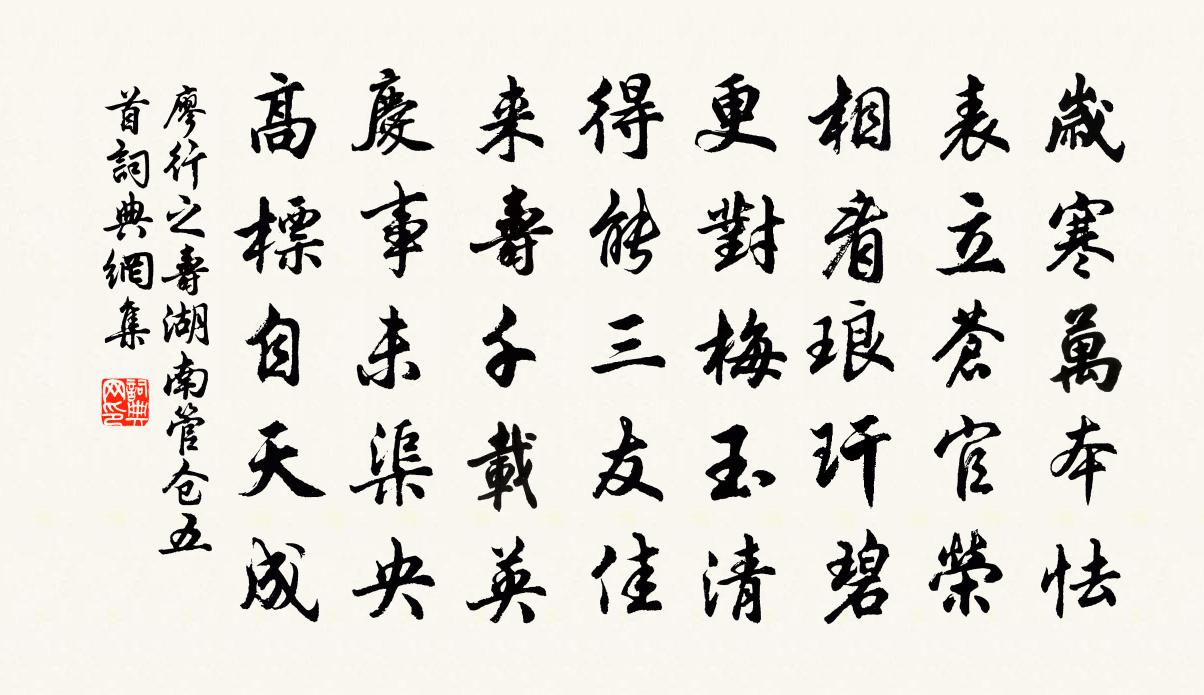 歲寒萬本怯
表立蒼官榮
相看琅玕碧
更對梅玉清
得能三友佳
来壽千載英
慶事未渠央
高標自天成
廖行之壽湖南管仓五
首詞典網集
詞典网印